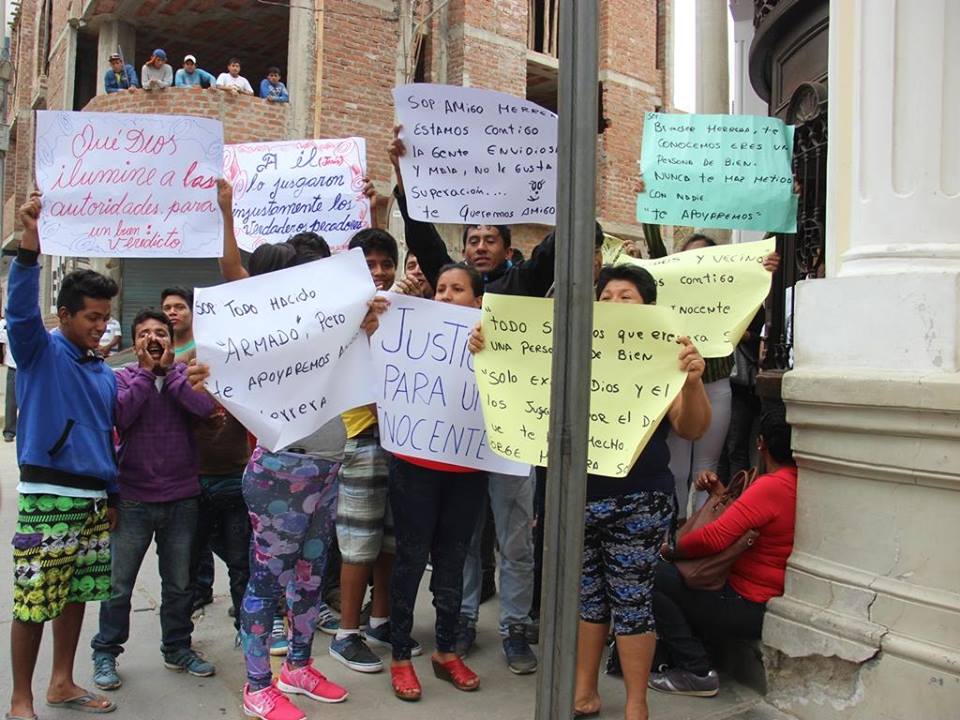 Qué Dios
ilumine a las
autoridades para
un bien
Veredicto
A él (Jesús)
lo jusgaron
injustamente los
verdaderos pecadores
SOP. AMIGO HERRE
ESTAMOS CONTIGO
LA GENTE ENVIDIOSA
Y MALA, NO LE GUSTA
SUPERACIÓN....
"te QUEREMOS AMIGO
SOP
BRADER HERRERA, te
CONOCEMOS ERES U
PERSONA DE BIEN.
NUNCA te HAZ METIDO
CON NADIE
"te APOYAREMOS"
SOP. TODO HA CIDO
"ARMADO", PERO
te APOYAREMOS
errera
JUSTIC
PARA UN
NOCENTE
S Y VECINO
CONTIGO
NOCENTE
"TODO S OS QUE ERE
UNA PERSO DE BIEN
"SOLO EXI DIOS Y EL
LOS JUSG POR EL
UE te HECHO.
ORGE